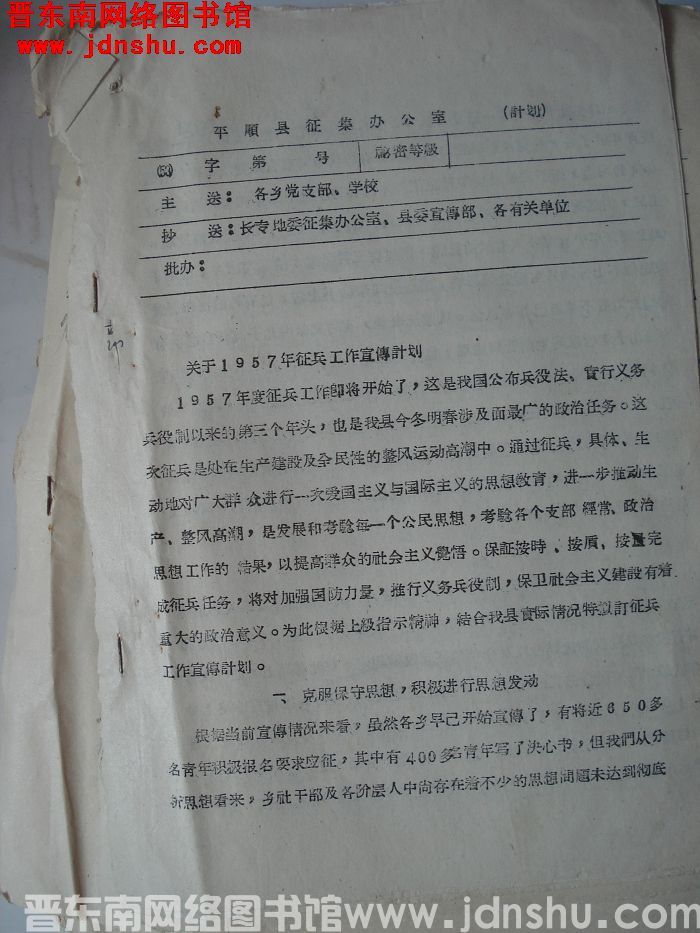 晋东南网络图书馆
www.jdnshu.com
平順县征集办公室 (計划)
字第 号 祕密等級
主送: 各乡党支部、学校
抄送: 长专地委征集办公室、县委宣傳部、各有关单位
批办:
关于1957年征兵工作宣傳計划
1957年度征兵工作即将开始了,这是我国公布兵役法、實行义务
兵役制以来的第三个年头,也是我县今冬明春涉及面最广的政治任务。这
次征兵是处在生产建設及全民性的整风运动高潮中。通过征兵,具体、生
动地对广大群众进行一次爱国主义与国际主义的思想教育,进一步推动生
产、整风高潮,是发展和考驗每一个公民思想,考驗各个支部經常、政治
思想工作的結果,以提高群众的社会主义覺悟。保証按時、按質、按量完
成征兵任务,将对加强国防力量,推行义务兵役制,保卫社会主义建設有着
重大的政治意义。为此根据上級指示精神,結合我县實际情况特拟訂征兵
工作宣傳計划。
一、克服保守思想,积极进行思想发动
根据当前宣傳情况来看,虽然各乡早已开始宣傳了,有将近650多
名青年积极报名要求应征,其中有400多名青年写了决心书,但我們从分
析思想看来,乡社干部及各阶层人中尚存在着不少的思想問題未达到彻底
晋东南网络图书馆 www.jdnshu.com